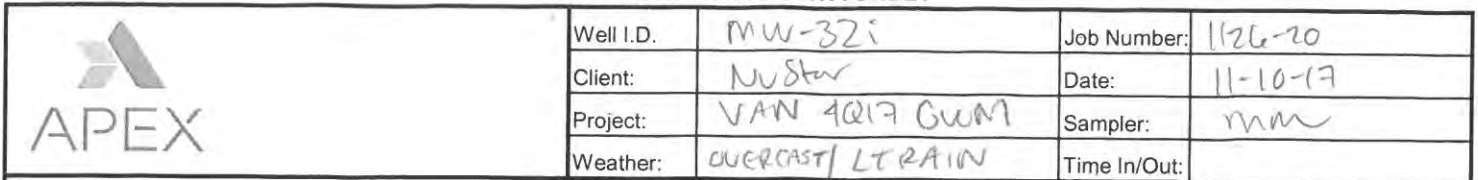 APEX
Well I.D. MW-32i Job Number: 1126-20
Client: NuStar Date: 11-10-17
Project: VAN 4Q17 GWM Sampler: MM
Weather: OVERCAST/ LT RAIN Time In/Out: